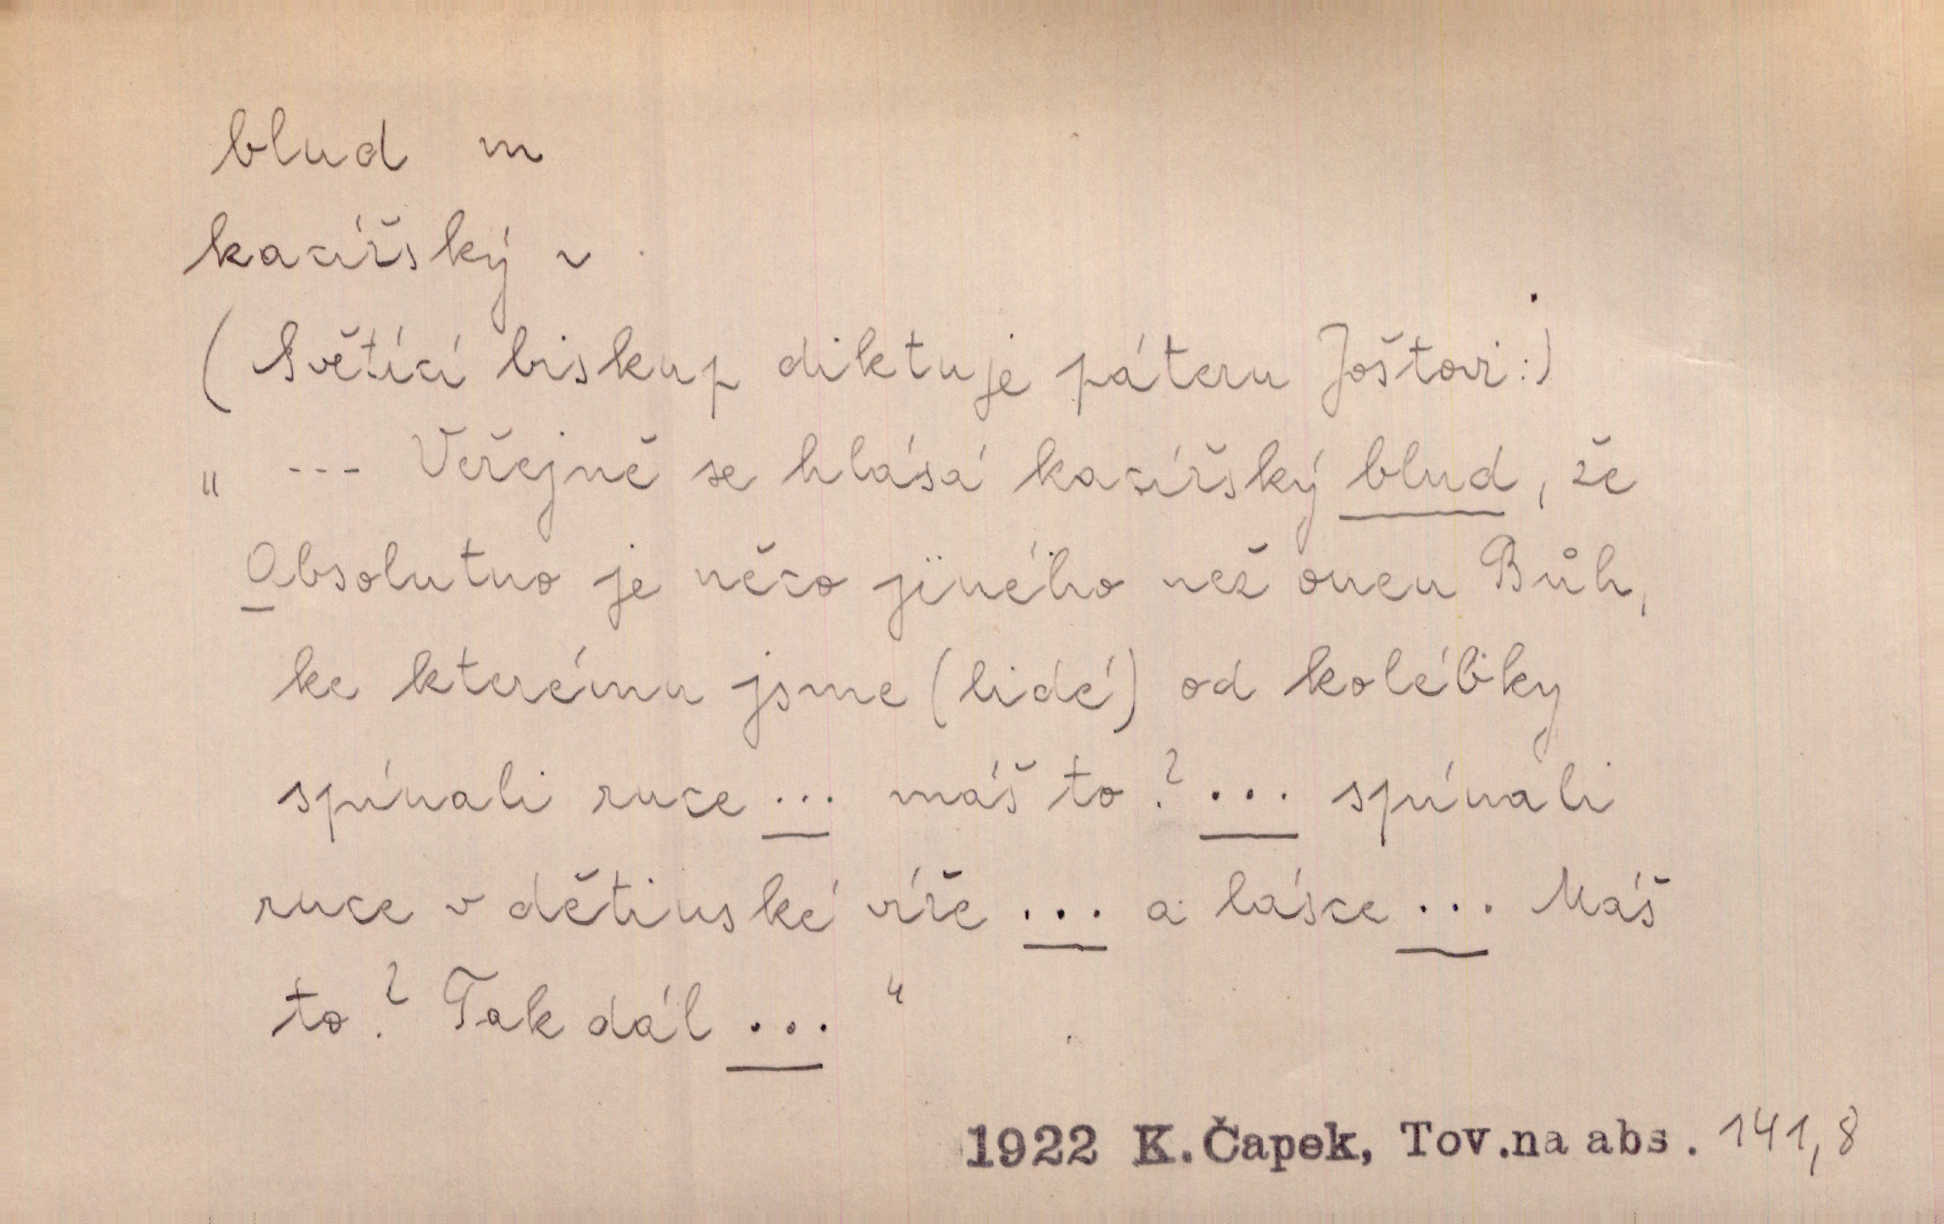 blud m
kacířský v
(Světící biskup diktuje páteru Joštovi:)
„ --- Veřejně se hlásá kacířský blud, že
Absolutno je něco jiného než onen Bůh,
ke kterému jsme (lidé) od kolébky
spínali ruce ... máš to? ... spínali
ruce v dětinské víře ... a lásce ... Máš
to? Tak dál ... “
1922 K. Čapek, Tov.na abs. 141,8